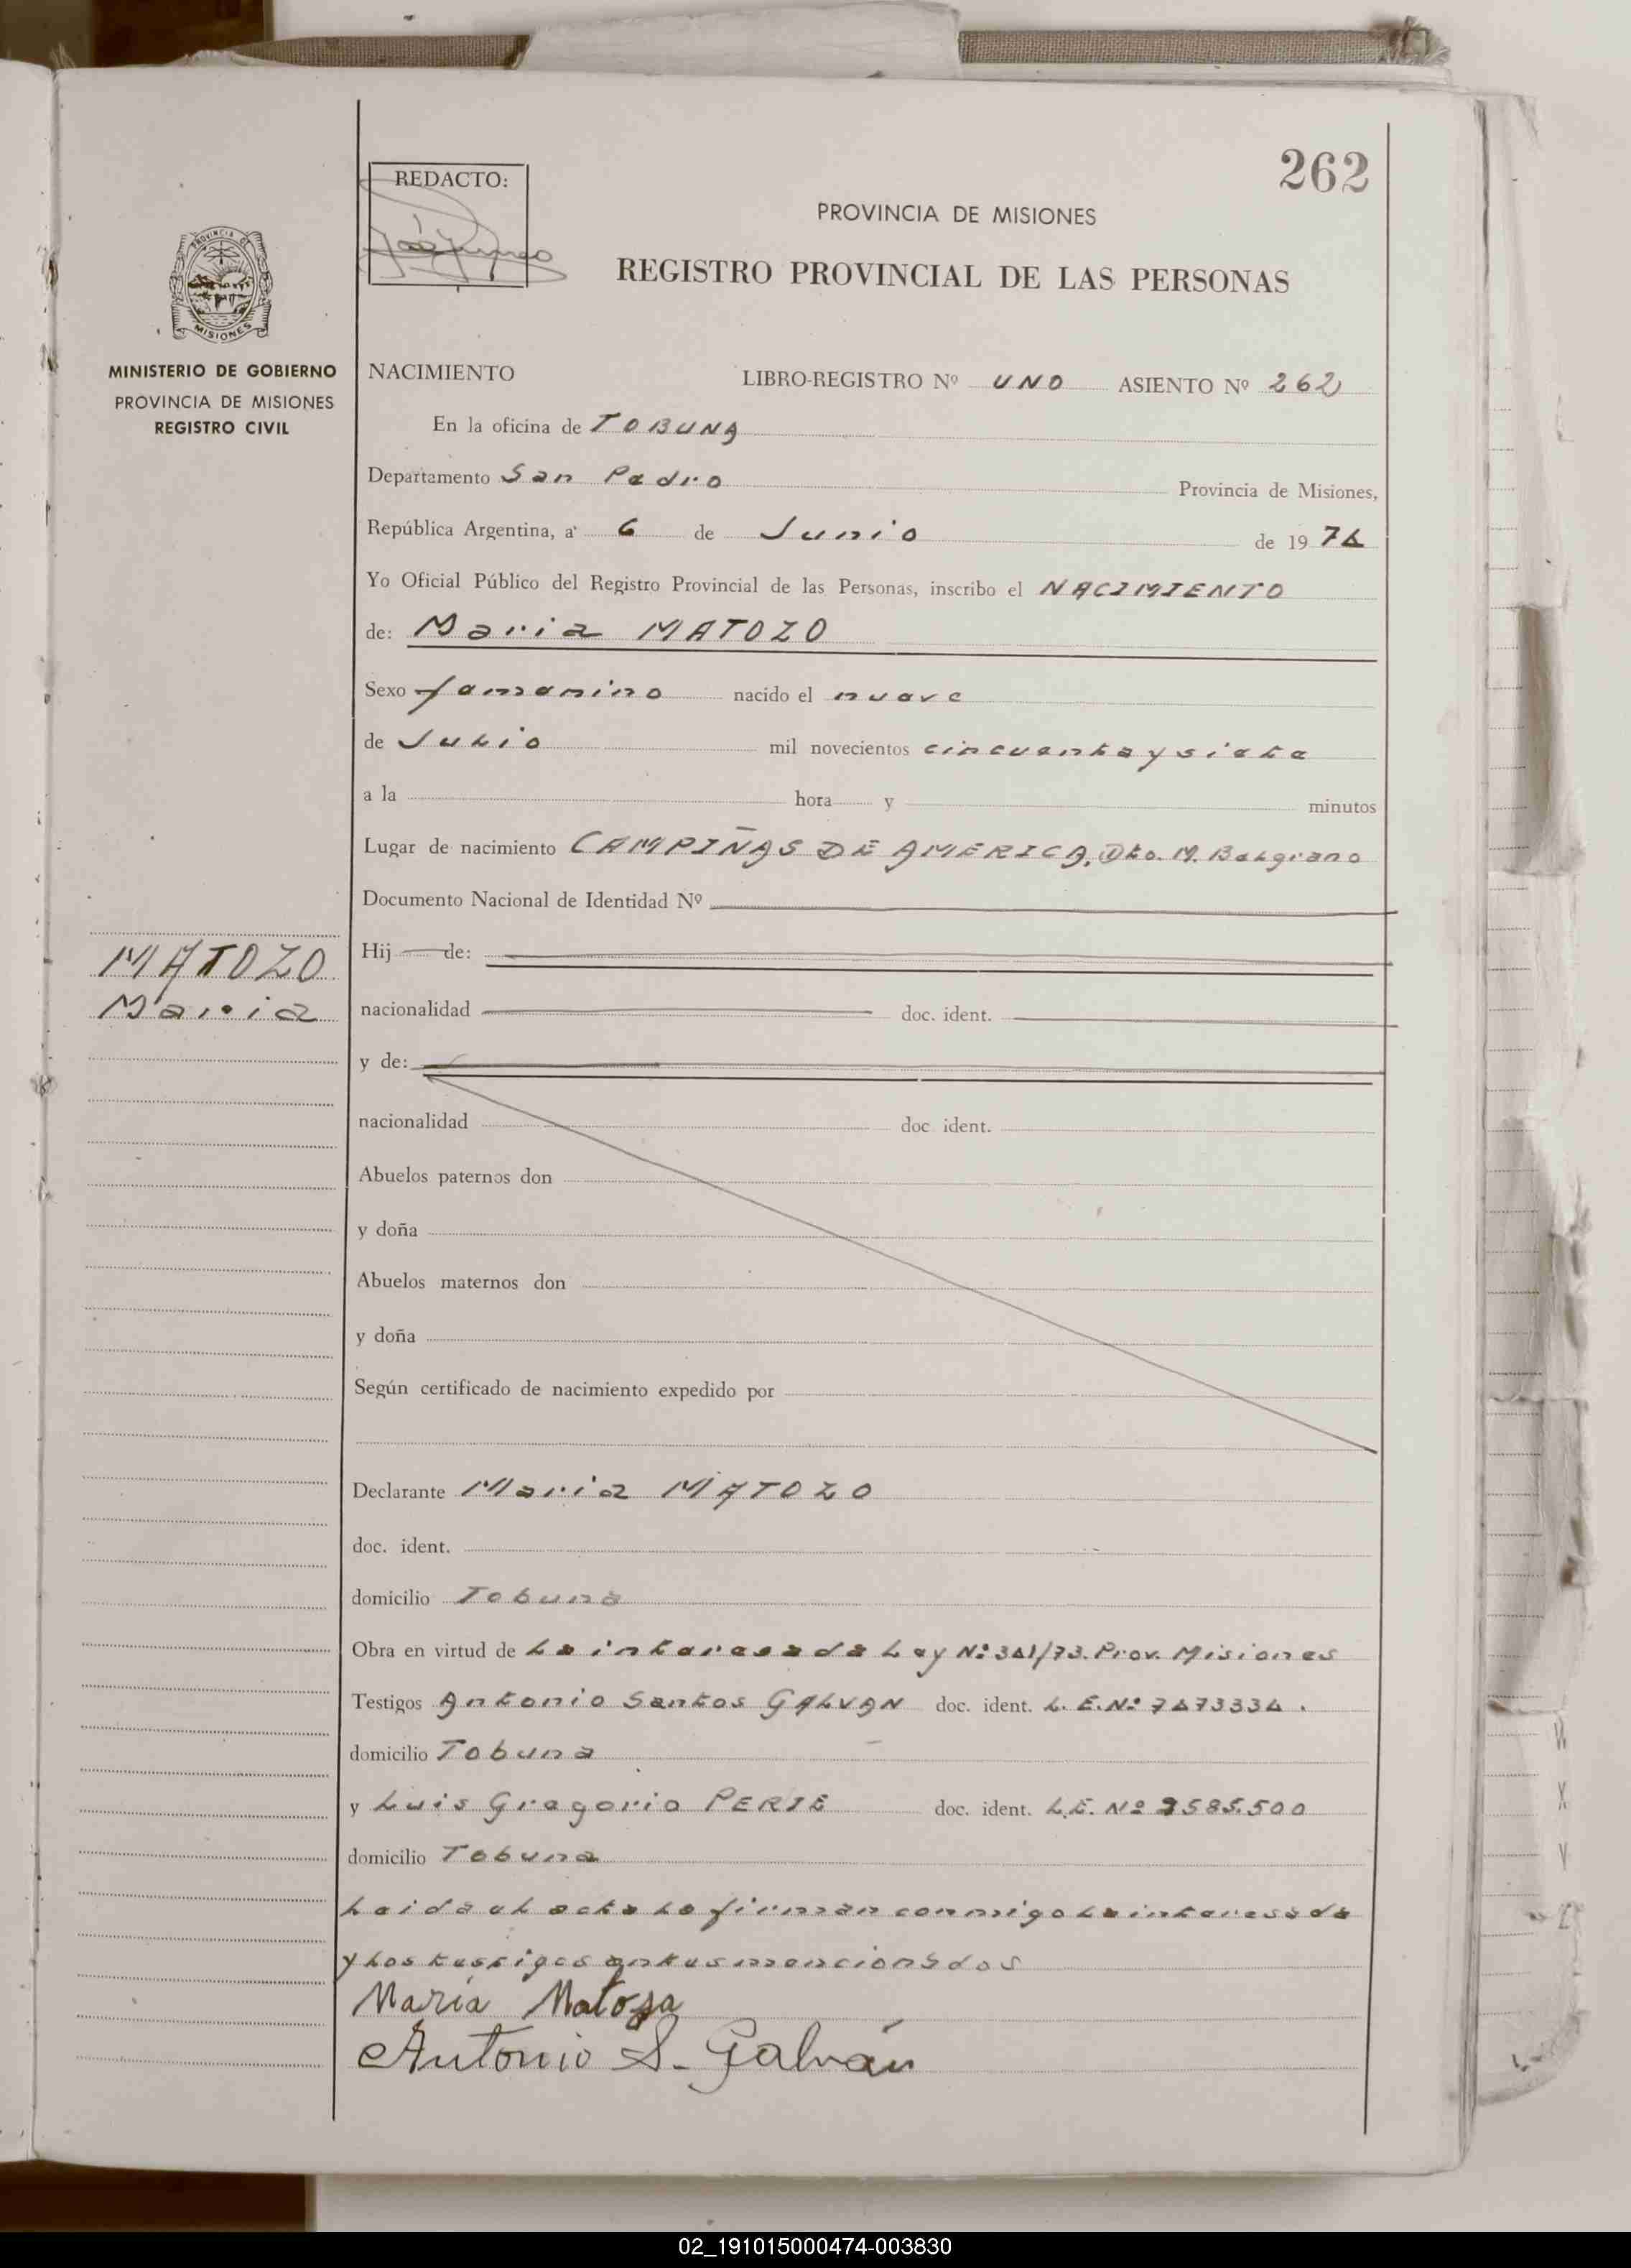 262
REDACTO:
PROVINCIA DE MISIONES
REGISTRO PROVINCIAL DE LAS PERSONAS
PROVINCIA DE
MISIONES
MINISTERIO DE GOBIERNO
PROVINCIA DE MISIONES
REGISTRO CIVIL
NACIMIENTO LIBRO-REGISTRO Nº UNO ASIENTO Nº 262
En la oficina de TOBUNA
Departamento San Pedro Provincia de Misiones,
República Argentina, a 6 de Junio de 1974
Yo Oficial Público del Registro Provincial de las Personas, inscribo el NACIMIENTO
de: Maria MATOZO
Sexo femenino nacido el nueve
de Julio mil novecientos cincuenta y siete
a la hora y minutos
Lugar de nacimiento CAMPIÑAS DE AMERICA, Dto. M. Belgrano
Documento Nacional de Identidad Nº
MATOZO
Maria
Hij de:
nacionalidad doc. ident.
y de:
nacionalidad doc. ident.
Abuelos paternos don
y doña
Abuelos maternos don
y doña
Según certificado de nacimiento expedido por
Declarante Maria MATOZO
doc. ident.
domicilio Tobuna
Obra en virtud de La interesada Ley Nº 341/73. Prov. Misiones
Testigos Antonio Santos GALVAN doc. ident. L. E. Nº 7473334.
domicilio Tobuna
y Luis Gregorio PERIE doc. ident. L.E. Nº 585.500
domicilio Tobuna
Leida el acta la firman conmigo la interesada
y los testigos antes mencionados
María Matoza
Antonio S. Galván
02_191015000474-003830